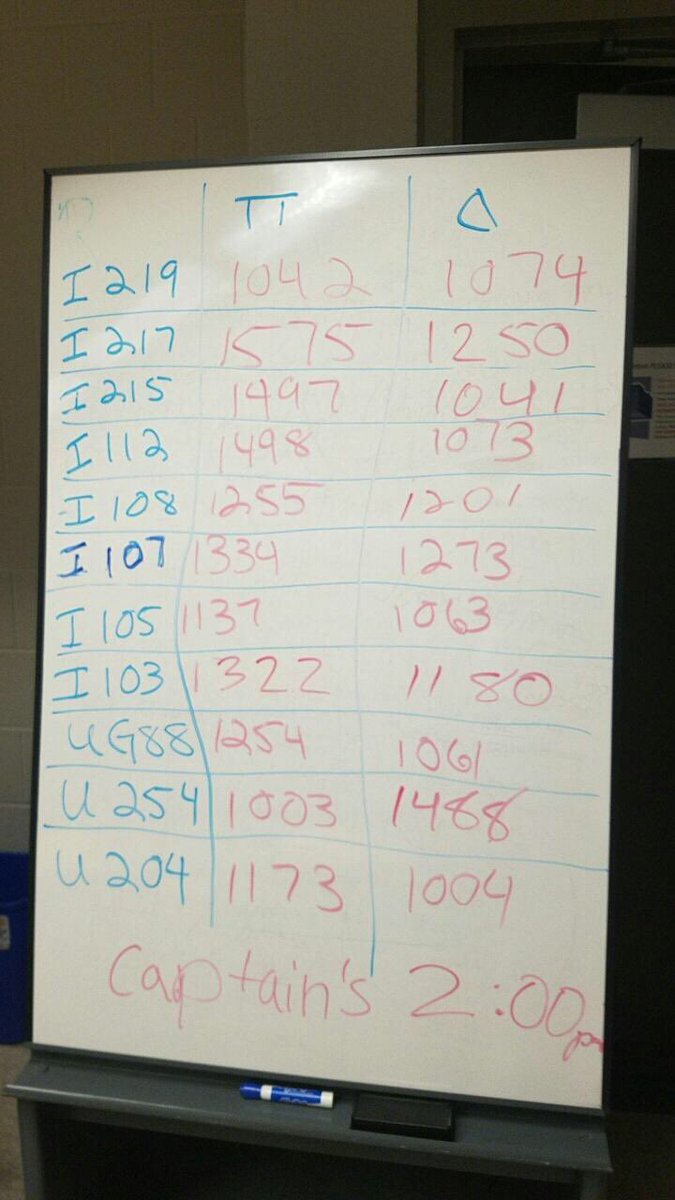 π Δ
I 219 1042 1074
I 217 1575 1250
I 215 1497 1041
I 112 1498 1073
I 108 1255 1201
I 107 1334 1273
I 105 1137 1063
I 103 1322 1180
UG88 1254 1061
U 254 1003 1488
U 204 1173 1004
Captain's 2:00pm